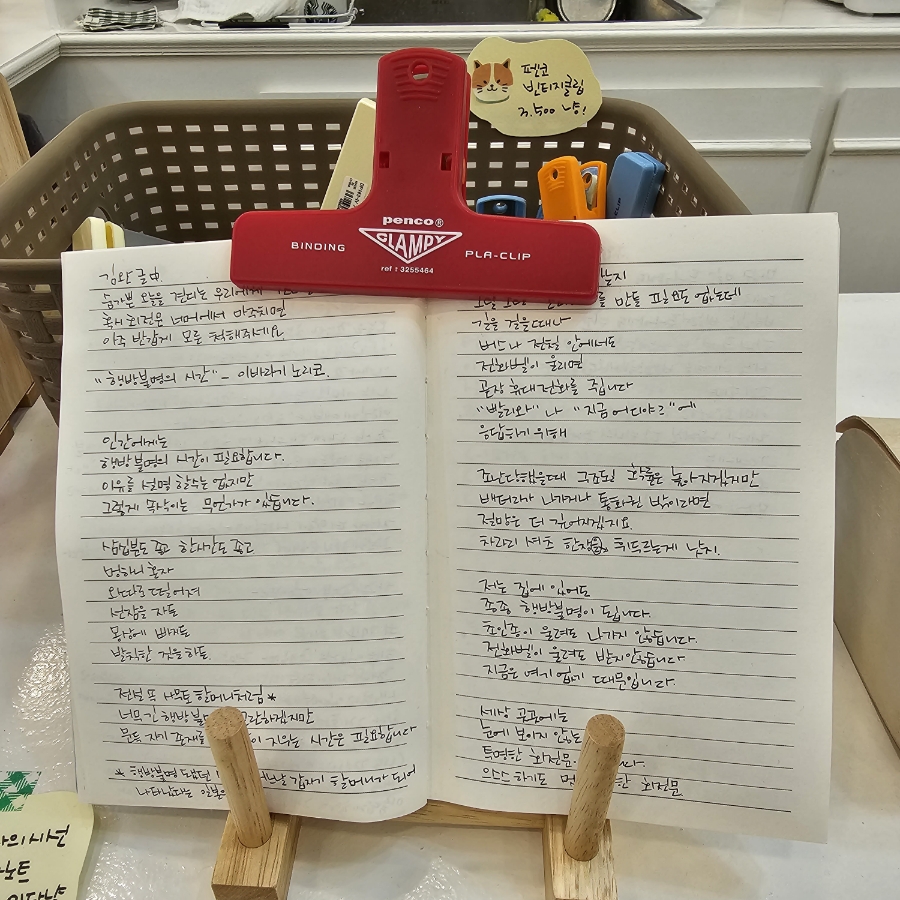 펜코
빈티지클립
3,500 냥!
penco®
BINDING CLAMPY PLA-CLIP
ref : 3255464
숨가쁜 오늘을 견디는 우리에게
혹시 회전문 너머에서 마주치면
아주 반갑게 모른 척해주세요
"행방불명의 시간" - 이바라기 노리코.
인간에게는
행방불명의 시간이 필요합니다.
이유를 설명할수는 없지만
그렇게 속삭이는 무언가가 있습니다.
삼십분도 좋고 한시간도 좋고
멍하니 혼자
외따로 떨어져
선잠을 자든
몽상에 빠지든
발칙한 짓을 하든
전설 속 사무토 할머니처럼*
너무 긴 행방불 곤란하겠지만
문득 자기 존재를 이 지우는 시간은 필요합니다
* 행방불명 됐던 갑자기 할머니가 되어
나타났다는 일본
만들 필요도 없는데
길을 걸을때나
버스나 전철 안에서도
전화벨이 울리면
곧장 휴대전화를 줍니다
"빨리와" 나 "지금 어디야?" 에
응답하기 위해
조난당했을때 구조될 확률은 높아지겠지만
배터리가 나가거나 통화권 밖이라면
절망은 더 깊어지겠지요.
차라리 셔츠 한장을 휘두르는게 낫지.
저는 집에 있어도
종종 행방불명이 됩니다.
초인종이 울려도 나가지 않습니다.
전화벨이 울려도 받지않습니다
지금은 여기 없기 때문입니다.
세상 곳곳에는
눈에 보이지 않는
투명한 회전문
으스스하기도 한 회전문